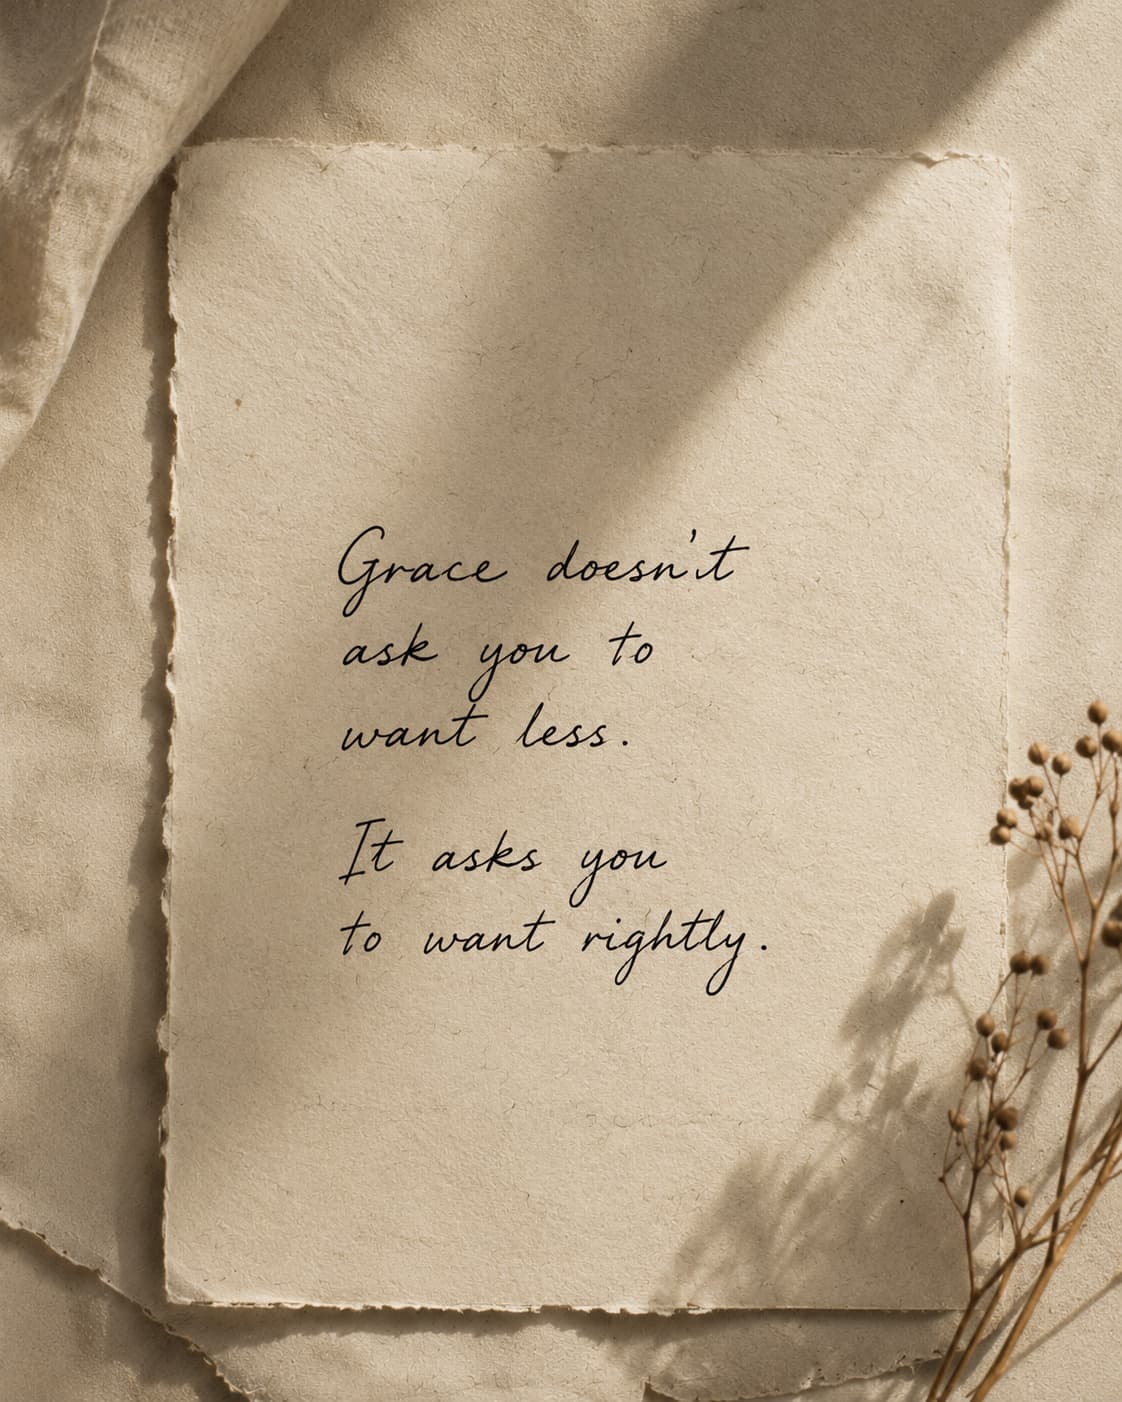 Grace doesn't
ask you to
want less.
It asks you
to want rightly.